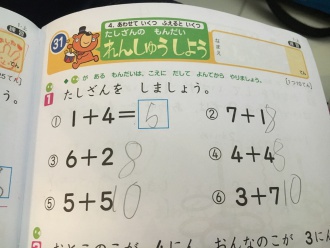 4. あわせて いくつ ふえると いくつ
31
たしざんの もんだい
れんしゅう しよう
なまえ
が ある もんだいは、こえに だして よんでから やりましょう。
1 たしざんを しましょう。
① 1+4=5
② 7+1 8
③ 6+2 8
④ 4+4 8
⑤ 5+5 10
⑥ 3+7 10
おとこのこが 4にん おんなのこが 3にん